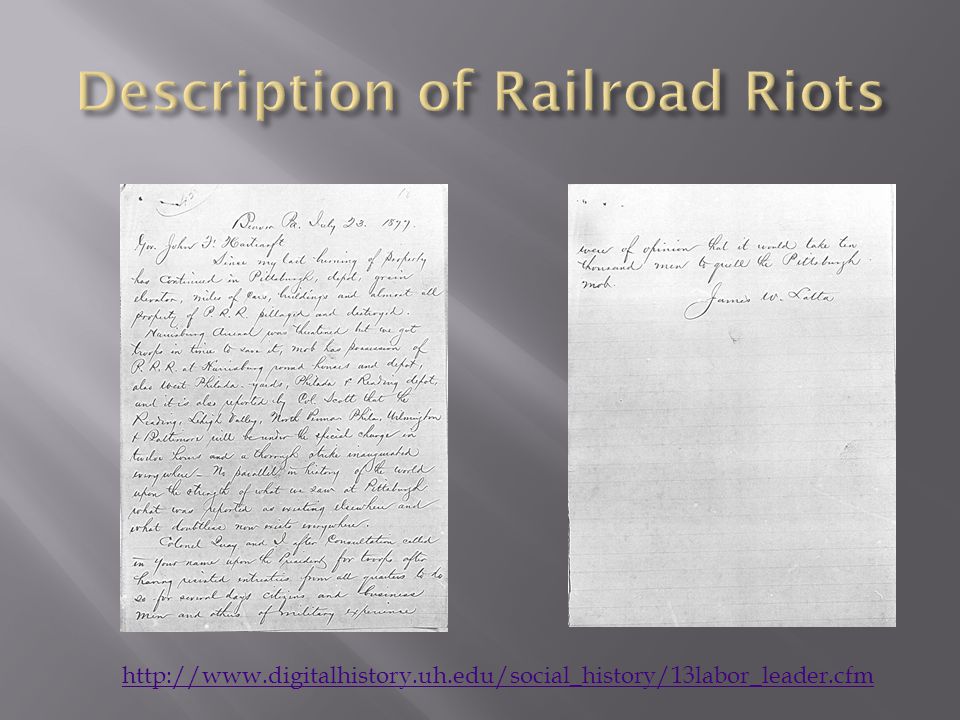 Description of Railroad Riots
Pa. July 23. 1877.
Gov. John F. Hartranft
Since my last burning of property
has continued in Pittsburgh, depot, grain
elevator, miles of cars, buildings and almost all
property of P. R. R. pillaged and destroyed.
Harrisburg Arsenal was threatened but we got
troops in time to save it, mob has possession of
P. R. R. at Harrisburg round houses and depot,
also West Philada. yards, Philada & Reading depot,
and it is also reported by Col. Scott that the
Reading, Lehigh Valley, North Penna. Phila, Wilmington
& Baltimore will be under the special charge in
twelve hours and a thorough strike inaugurated
everywhere - No parallel in history of the world
upon the strength of what we saw at Pittsburgh
what was reported as existing elsewhere and
what doubtless now exists everywhere.
Colonel Quay and I after Consultation called
in your name upon the President for troops after
having resisted entreaties from all quarters to do
so for several days citizens and business
men and others of military experience
were of opinion that it would take ten
thousand men to quell the Pittsburgh
mob.
James W. Latta
http://www.digitalhistory.uh.edu/social_history/13labor_leader.cfm